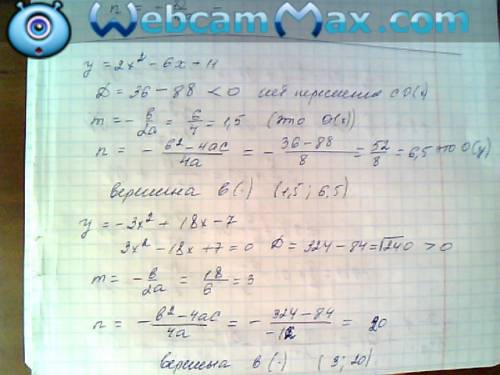 n = -
WebcamMax.com
y = 2x² - 6x + 11
D = 36 - 88 < 0 нет пересечения с O(x)
m = - b/2a = 6/4 = 1,5 (это O(x))
n = - (b² - 4ac)/4a = - (36 - 88)/8 = 52/8 = 6,5 это O(y)
вершина в (·) (1,5; 6,5)
y = -3x² + 18x - 7
3x² - 18x + 7 = 0 D = 324 - 84 = √240 > 0
m = - b/2a = 18/6 = 3
n = - (b² - 4ac)/4a = - (324 - 84)/-12 = 20
вершина в (·) (3; 20)